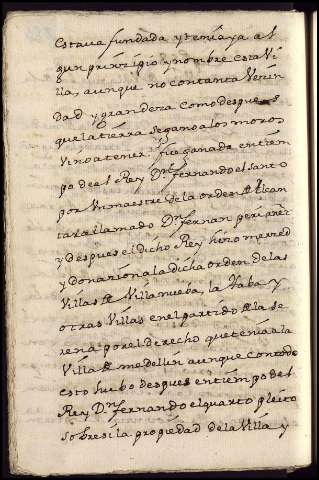 estava fundada y tenia ya al
gun prinzipio y nombre esta Vi
lla, aunque no con tanta Vecin
dad y grandeza como despues
que la tierra se gano a los moros
Vino a tener. fue ganada en tiem
po de el Rey Dn. fernando el santo
por Un maestre de la orden de Alcan
tara llamado Dn fernan
y despues el dicho Rey hizo merzed
y Donazion a la dicha orden de las
Villas de Villanueba, la Haba y
otras Villas en el partido de la se
rena por el derecho que tenia la
Villa de medellin aunque con todo
esto hubo despues en tiempo del
Rey Dn. fernando el quarto pleito
sobre si la propiedad de la Villa y